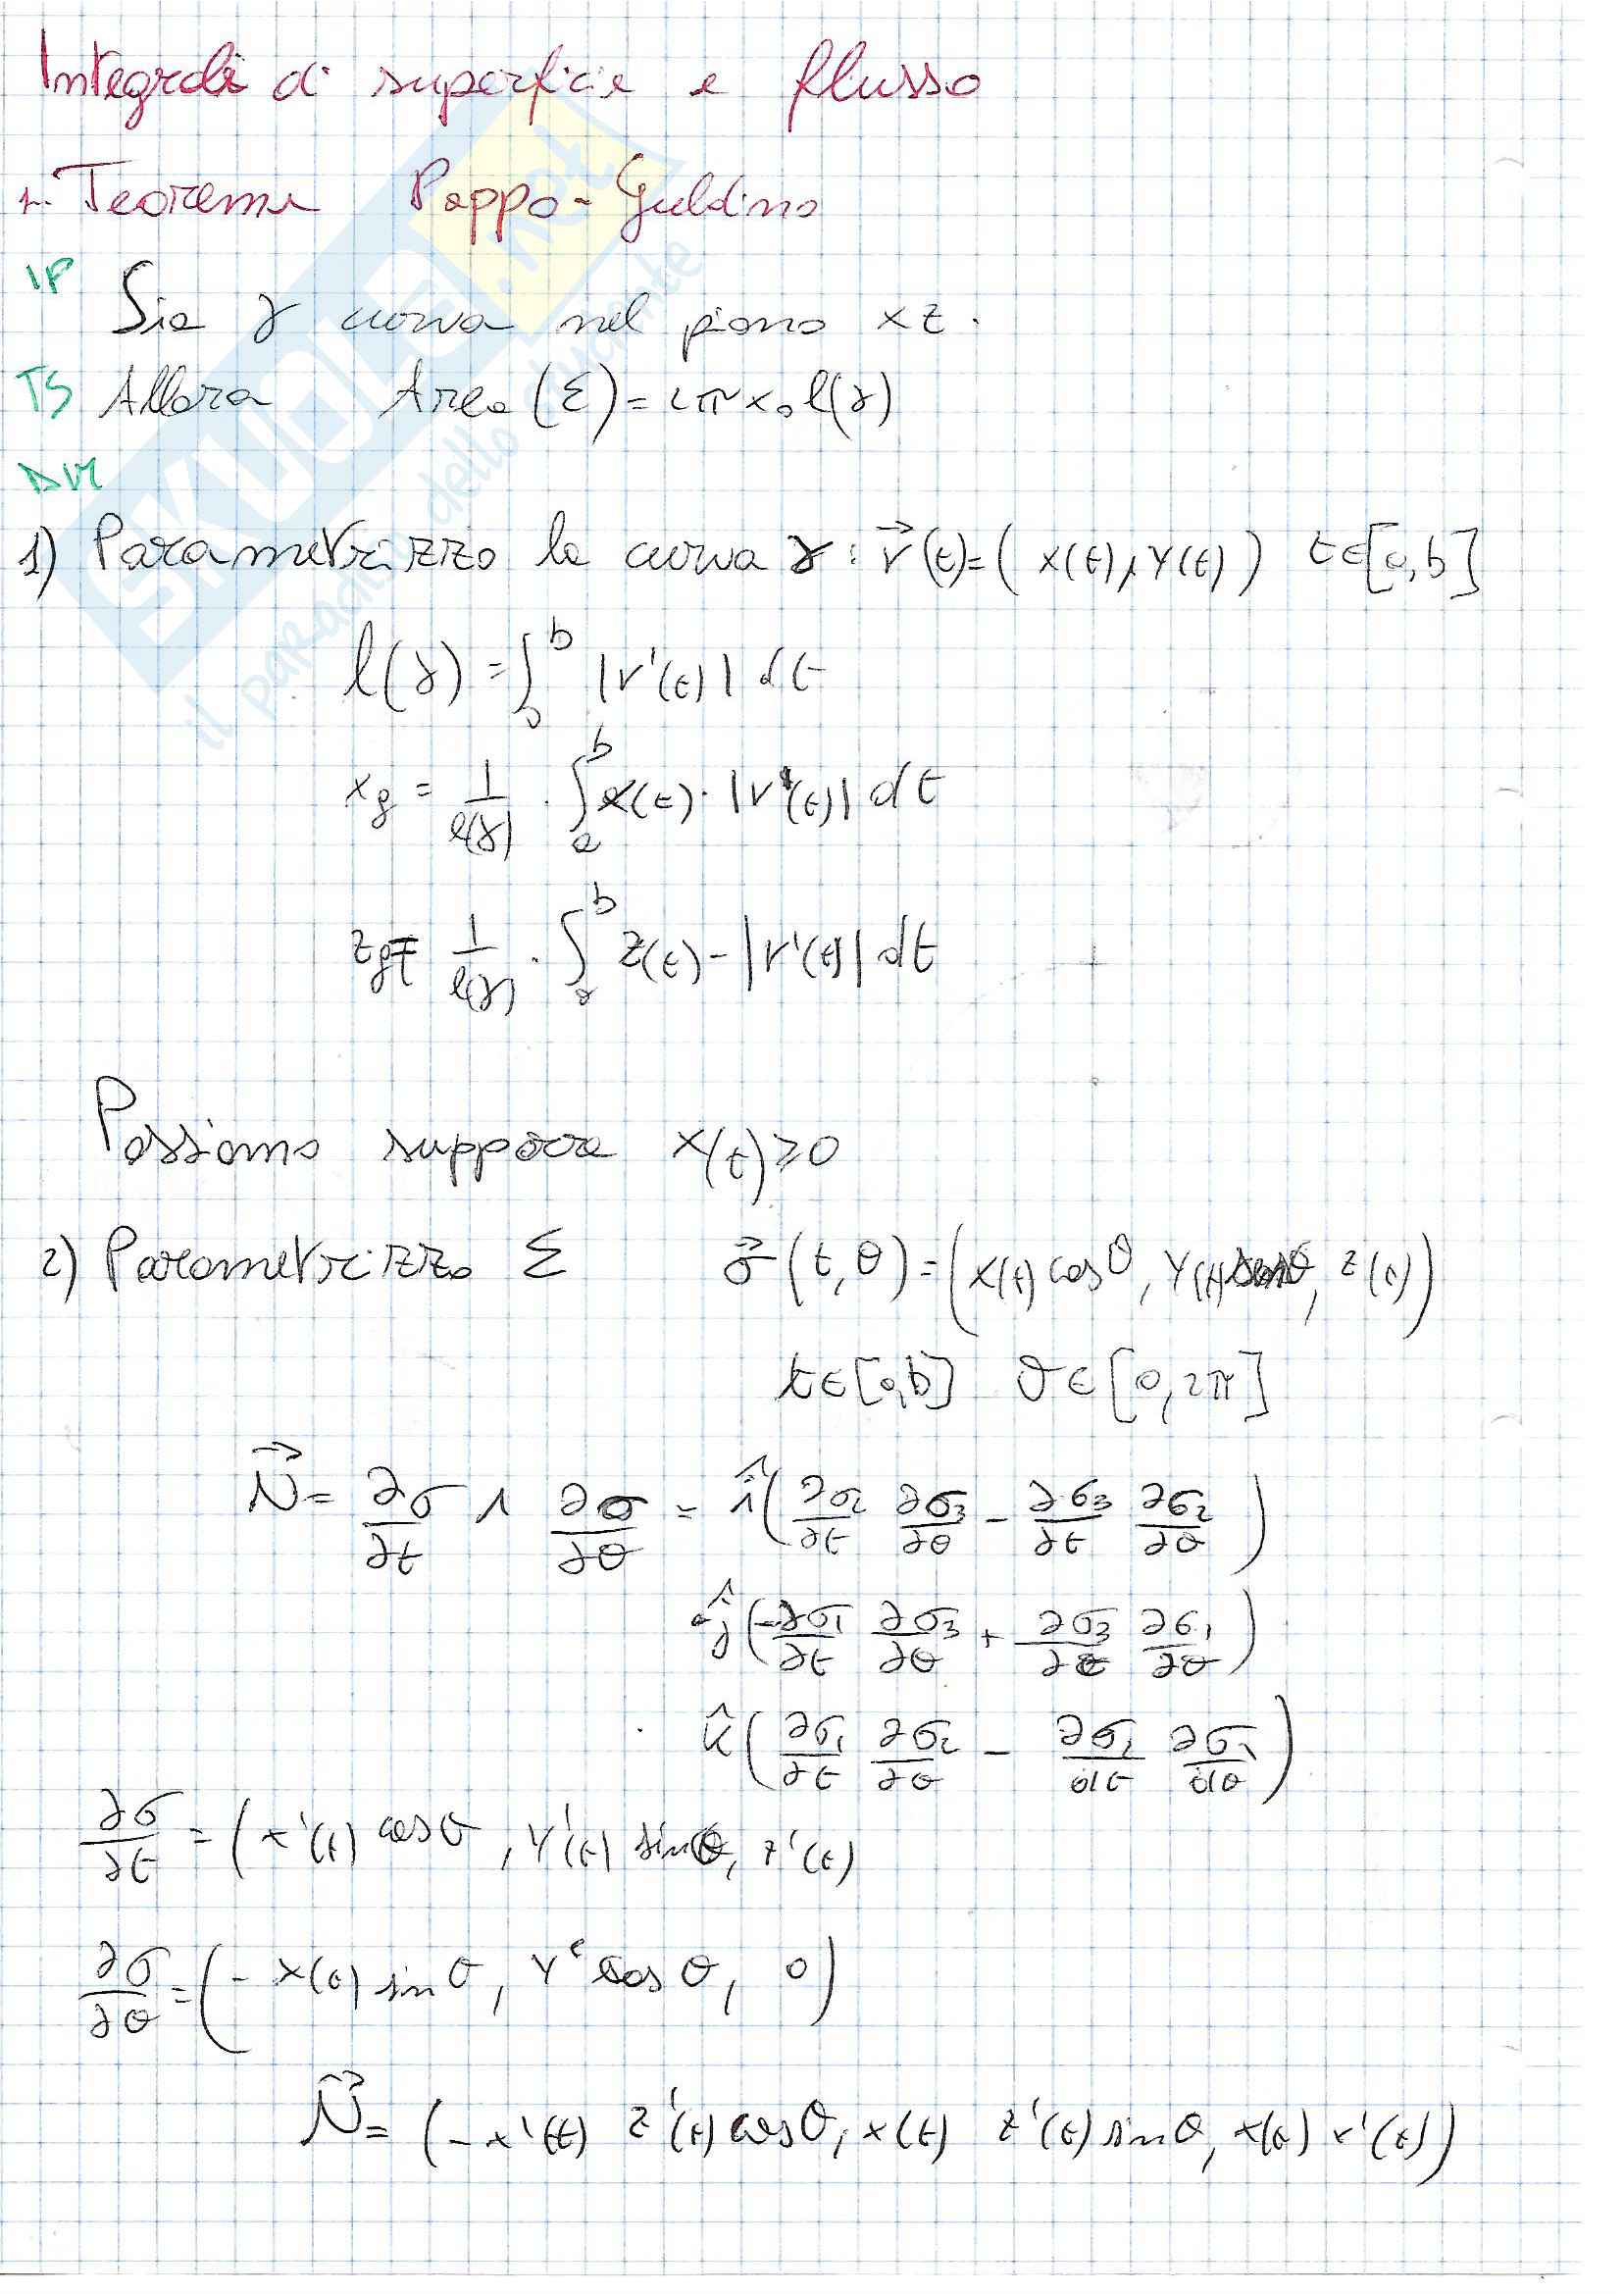 Integrali di superficie e flusso
1. Teorema Pappo-Guldino
IP Sia γ curva nel piano xz.
TS Allora Area (Σ) = 2π x₀ l(γ)
DIM
1) Parametrizzo la curva γ: r⃗(t) = (x(t), y(t)) t∈[a,b]
l(γ) = ∫_a^b |r'(t)| dt
x_g = 1/l(γ) · ∫_a^b x(t) · |r'(t)| dt
z_g = 1/l(γ) · ∫_a^b z(t) - |r'(t)| dt
Possiamo supporre x(t) ≥ 0
2) Parametrizzo Σ σ⃗(t, θ) = (x(t) cosθ, y(t) senθ, z(t))
t∈[a,b] ϑ∈[0,2π]
N⃗ = ∂σ/∂t ∧ ∂σ/∂θ = î (∂σ₂/∂t ∂σ₃/∂θ - ∂σ₃/∂t ∂σ₂/∂θ)
ĵ (-∂σ₁/∂t ∂σ₃/∂θ + ∂σ₃/∂t ∂σ₁/∂θ)
k̂ (∂σ₁/∂t ∂σ₂/∂θ - ∂σ₂/dt ∂σ₁/dθ)
∂σ/∂t = (x'(t) cosθ, y'(t) sinθ, z'(t)
∂σ/∂θ = (- x(t) sinθ, y cosθ, 0)
N⃗ = (-x'(t) z'(t) cosθ, x(t) z'(t) sinθ, x(t) x'(t))
SKUOLA.net
il paradiso dello studente